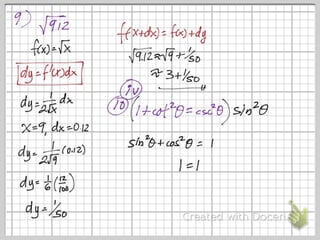 9) √9.12
f(x)=√x
dy=f'(x)dx
dy=1/2√x dx
x=9, dx=0.12
dy=1/2√9 (0.12)
dy=1/6(12/100)
dy=1/50
f(x+dx)=f(x)+dy
√9.12≈√9+1/50
≈3+1/50
iv
10) (1+cot²θ=csc²θ) sin²θ
sin²θ+cos²θ=1
1=1
Created with Doceri